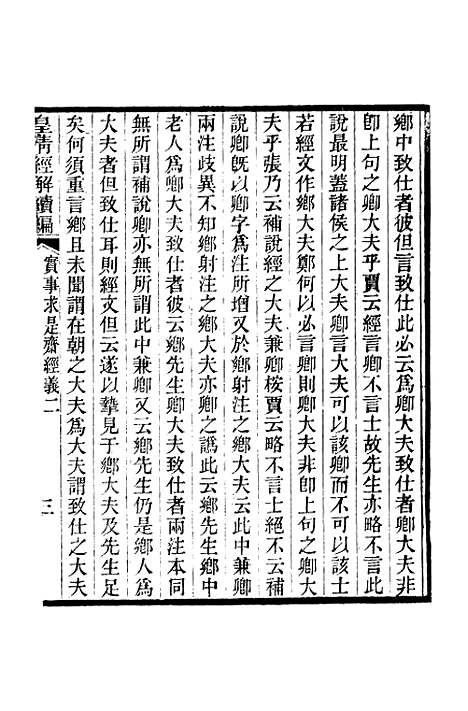 鄉中致仕者彼但言致仕此必云爲卿大夫致仕者卿大夫非
卽上句之卿大夫乎賈云經言卿不言士故先生亦略不言此
說最明蓋諸侯之上大夫卿言大夫可以該卿而不可以該士
若經文作鄉大夫鄭何以必言卿則卿大夫非卽上句之卿大
夫乎張乃云補說經之大夫兼卿桉賈云略不言士絕不云補
說卿旣以卿字爲注所增又於鄉射注之鄉大夫云此中兼卿
兩注歧異不知鄉射注之鄉大夫亦卿之譌此云鄉先生鄉中
老人爲卿大夫致仕者彼云鄉先生卿大夫致仕者兩注本同
無所謂補說卿亦無所謂此中兼卿又云鄉先生仍是鄉人爲
大夫者但致仕耳則經文但云遂以摯見于鄉大夫及先生足
矣何須重言鄉且未聞謂在朝之大夫爲大夫謂致仕之大夫
皇淸經解續編
實事求是齋經義二
三